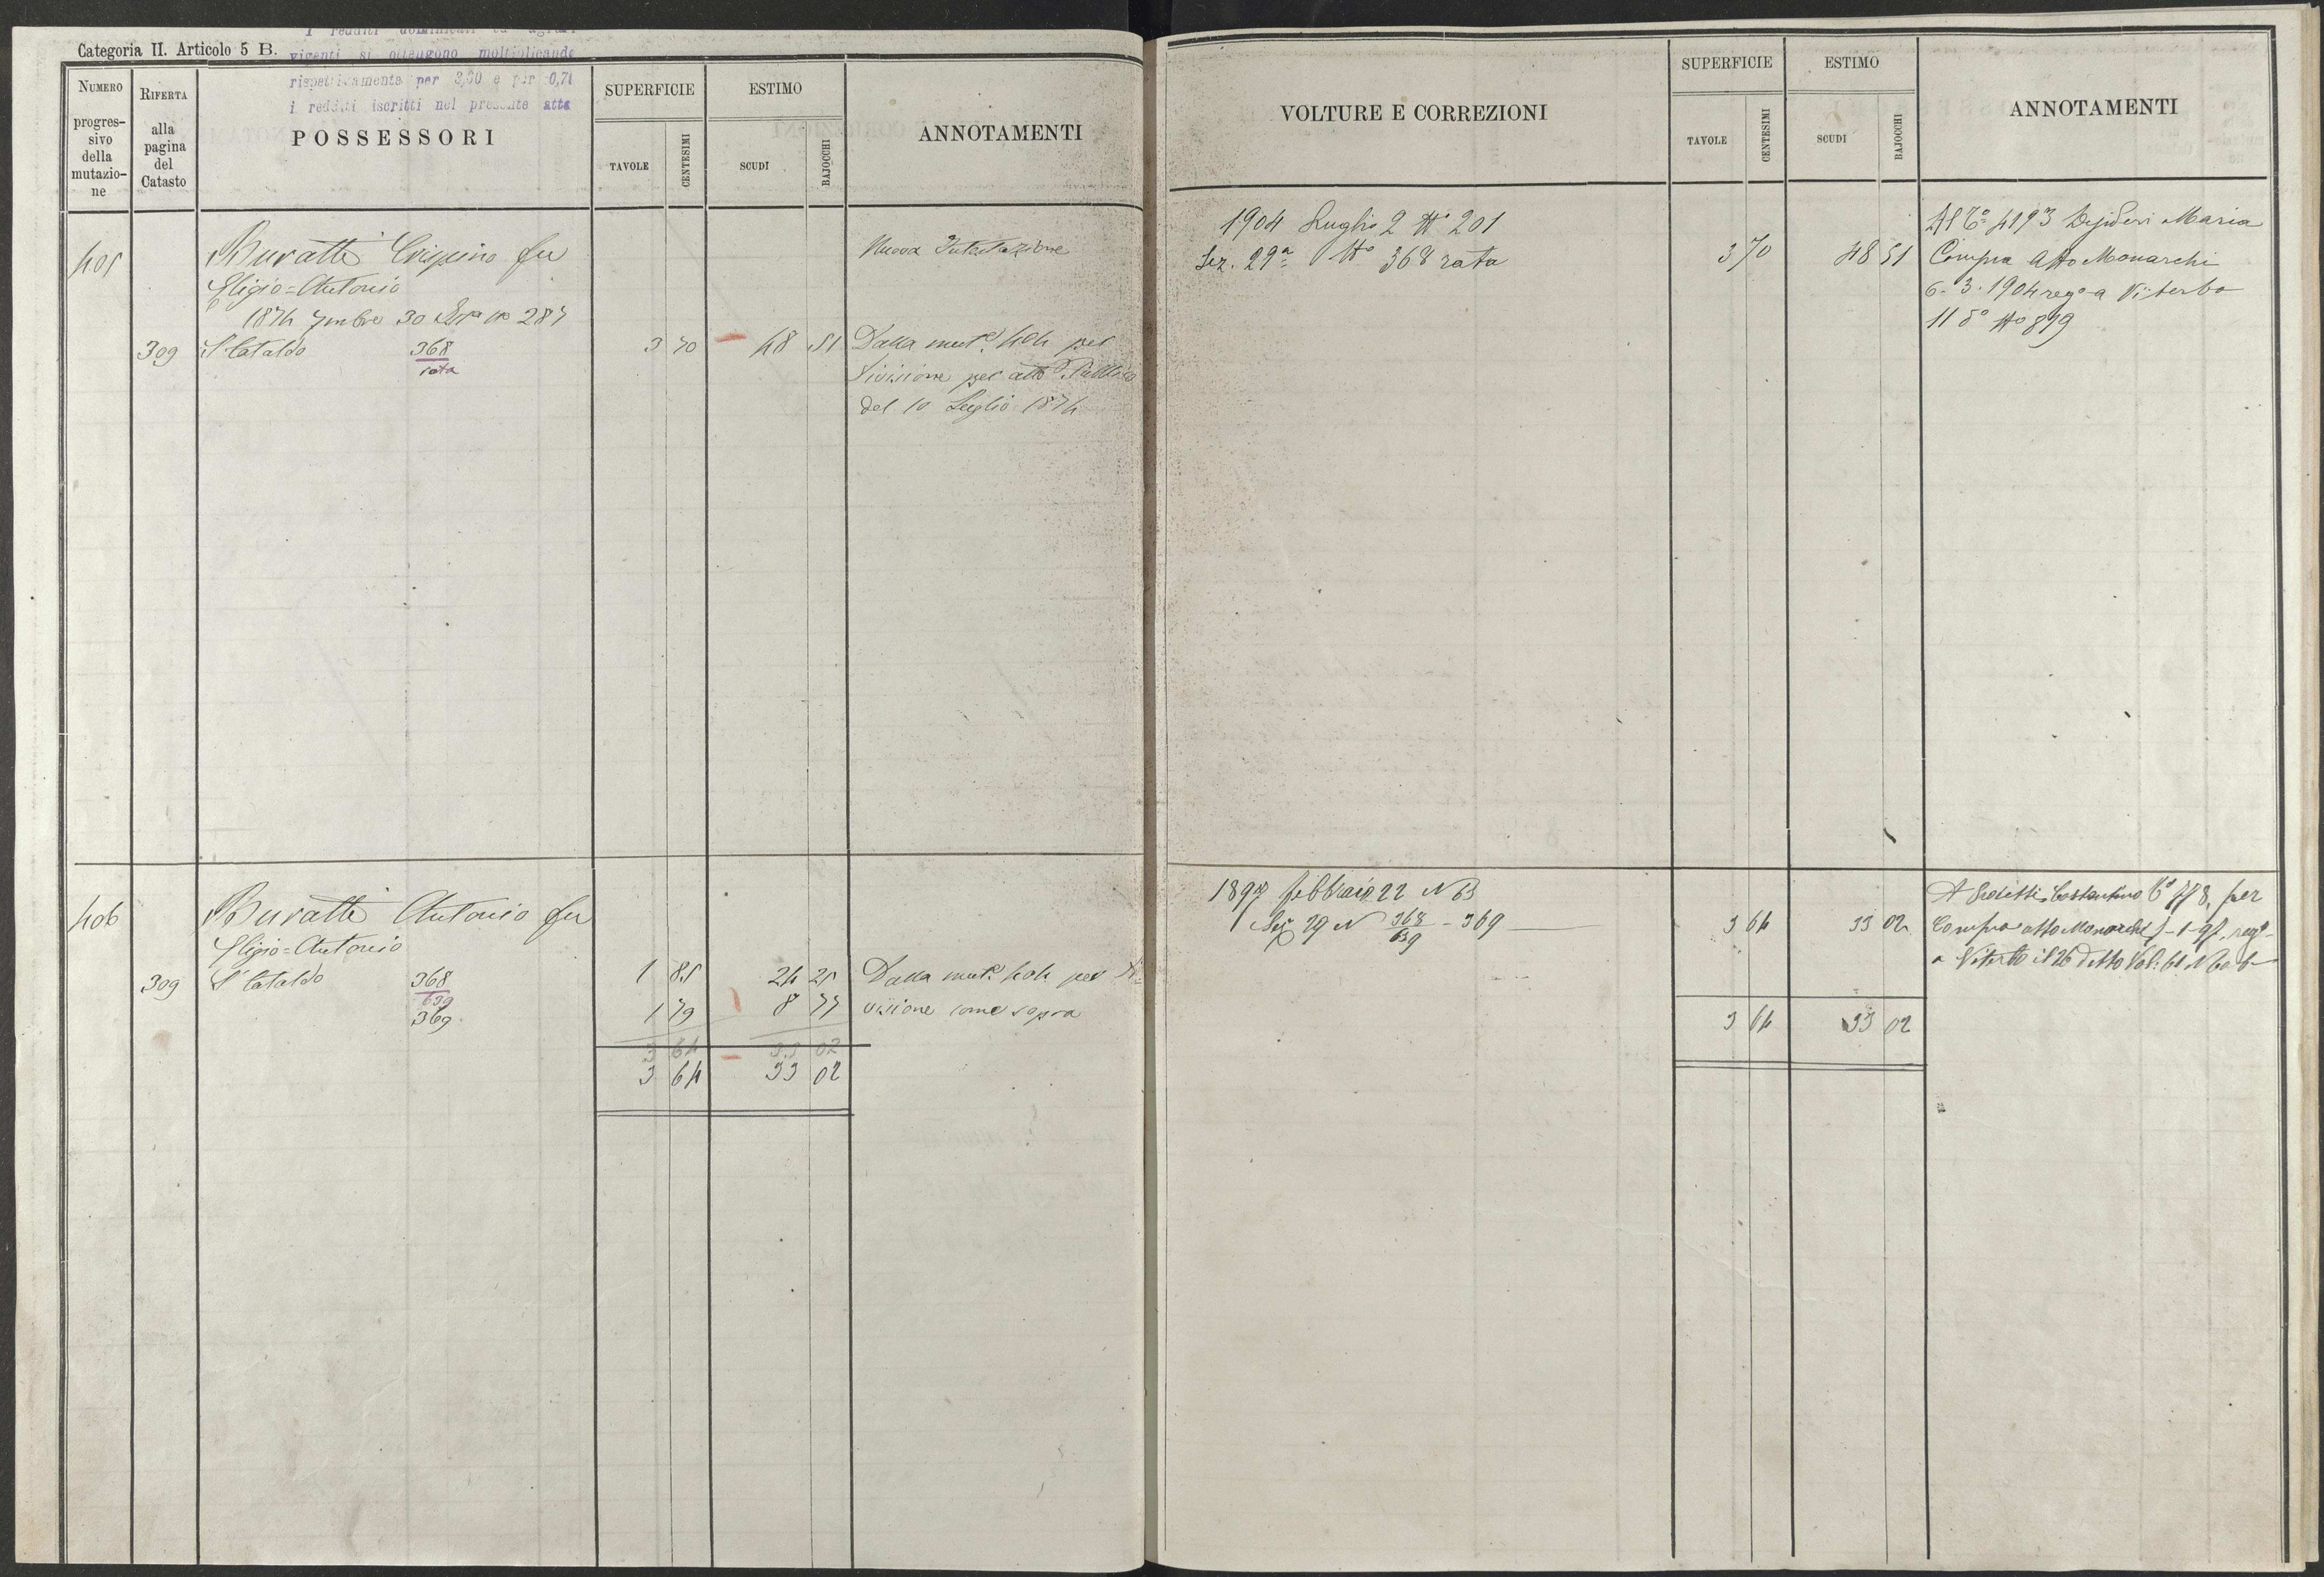 Categoria II. Articolo 5 B.
I redditi dominicali ed agrari
vigenti si ottengono moltiplicando
rispettivamente per 3,60 e per 0,71
i redditi iscritti nel presente atto
NUMERO progres-
sivo
della
mutazio-
ne
RIFERTA
alla
pagina
del
Catasto
POSSESSORI
SUPERFICIE
TAVOLE
CENTESIMI
ESTIMO
SCUDI
BAJOCCHI
ANNOTAMENTI
405
Buratti Crispino fu
Nuova Intestazione
Eligio=Antonio
1874 7mbre 30
309 S Cataldo 368 3 70 48 51 Dalla mut.e 404 per
rata
divisione per atto Pubblico
del 10 Luglio 1874
406 Buratti Antonio fu
Eligio=Antonio
309 S Cataldo 368 1 85 24 25 Dalla mut.e 404 per di-
639
369 1 79 8 77 visione come sopra
3 64 33 02
3 64 33 02
VOLTURE E CORREZIONI
SUPERFICIE
TAVOLE
CENTESIMI
ESTIMO
SCUDI
BAJOCCHI
ANNOTAMENTI
1904 Luglio 2 N° 201
Sez. 29a N° 368 rata 3 70 48 51
Al C° 4193 Desideri Maria
Compra atto Monarchi
6-3-1904 reg° a Viterbo
11 d° N° 819
1897 febbraio 22 N 63
Sez 29 N 368/639 - 369 3 64 33 02
A Costantino C° 778, per
Compra atto Monarchi 7-1-97, reg°
a Viterbo il 26 detto Vol: 61 N
3 64 33 02